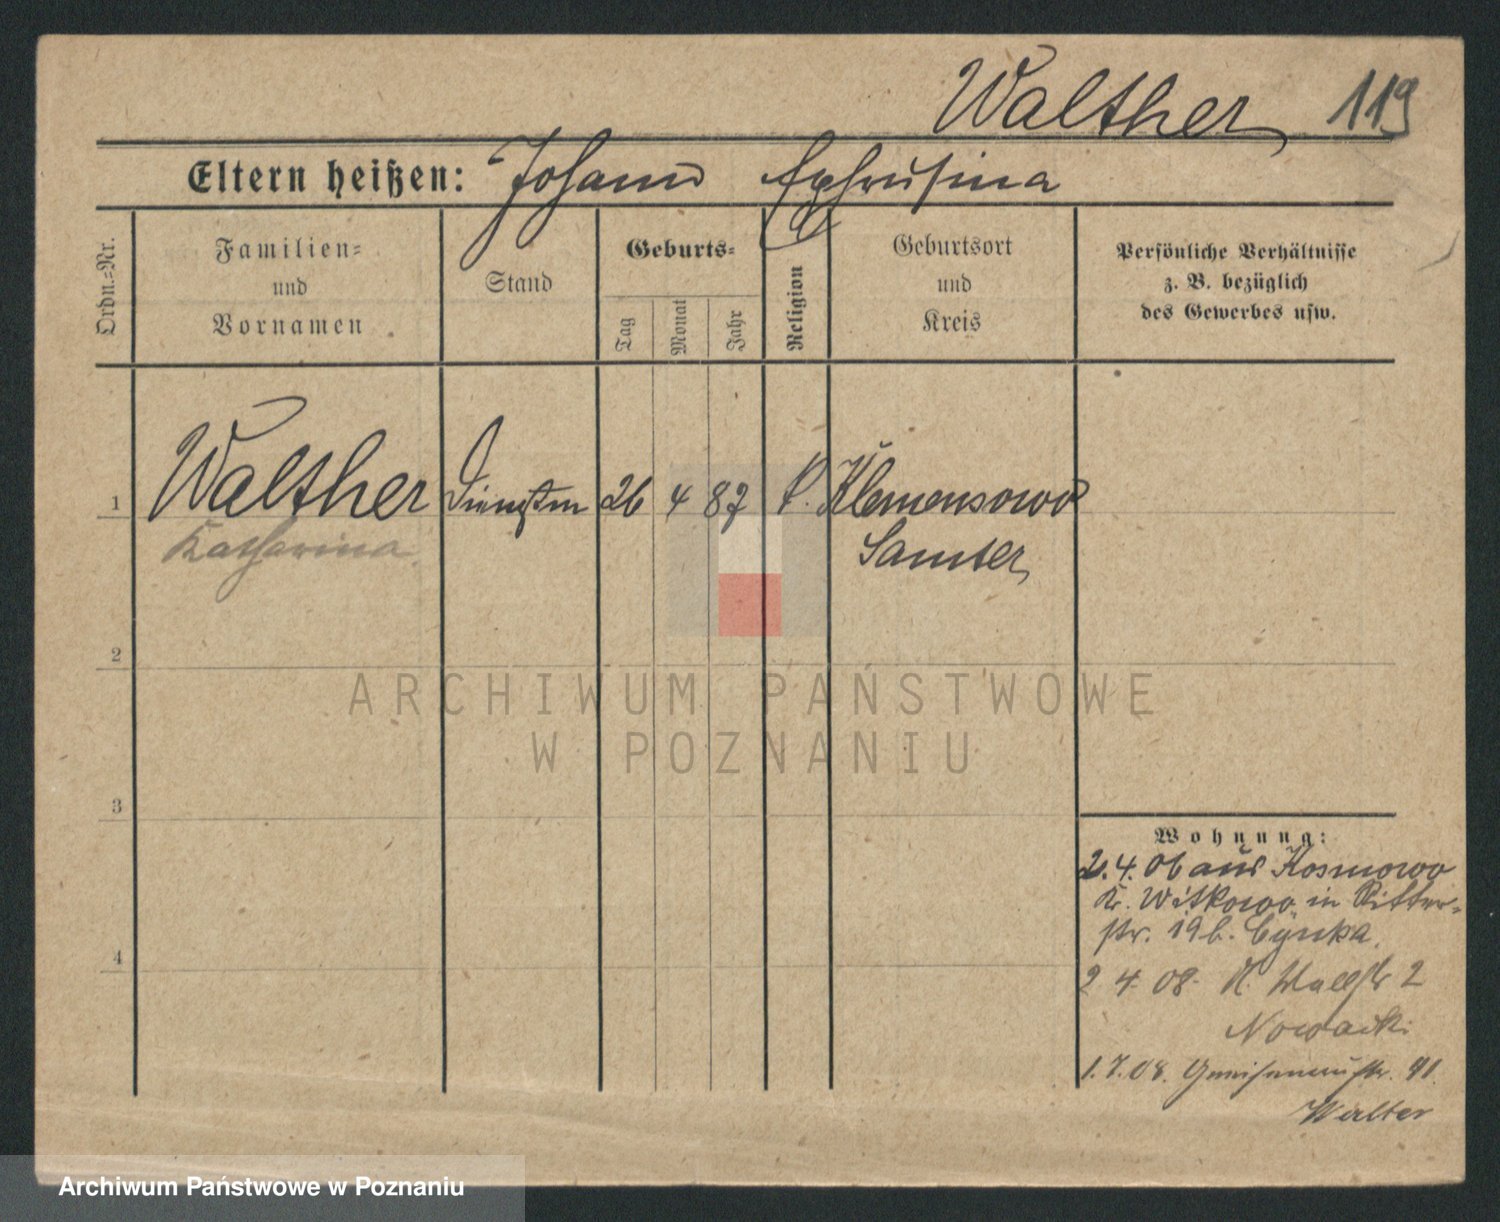 Walther 119
Eltern heißen: Johann Ephrusina
Ordn.=Nr.
Familien=
und
Vornamen
Stand
Geburts=
Tag
Monat
Jahr
Religion
Geburtsort
und
Kreis
Persönliche Verhältnisse
z. B. bezüglich
des Gewerbes usw.
1 Walther Dienstm 26 4 87 k. Klemensowo
Katharina Samter
2
3
4
Wohnung:
2.4.06 aus Kosmowo
Kr. Witkowo in Ritter-
str. 19 b. Cynka
2 4 08. Wallstr 2
Nowacki
1.7.08. Gneisenaustr. 41.
Walter
ARCHIWUM PAŃSTWOWE
W POZNANIU
Archiwum Państwowe w Poznaniu